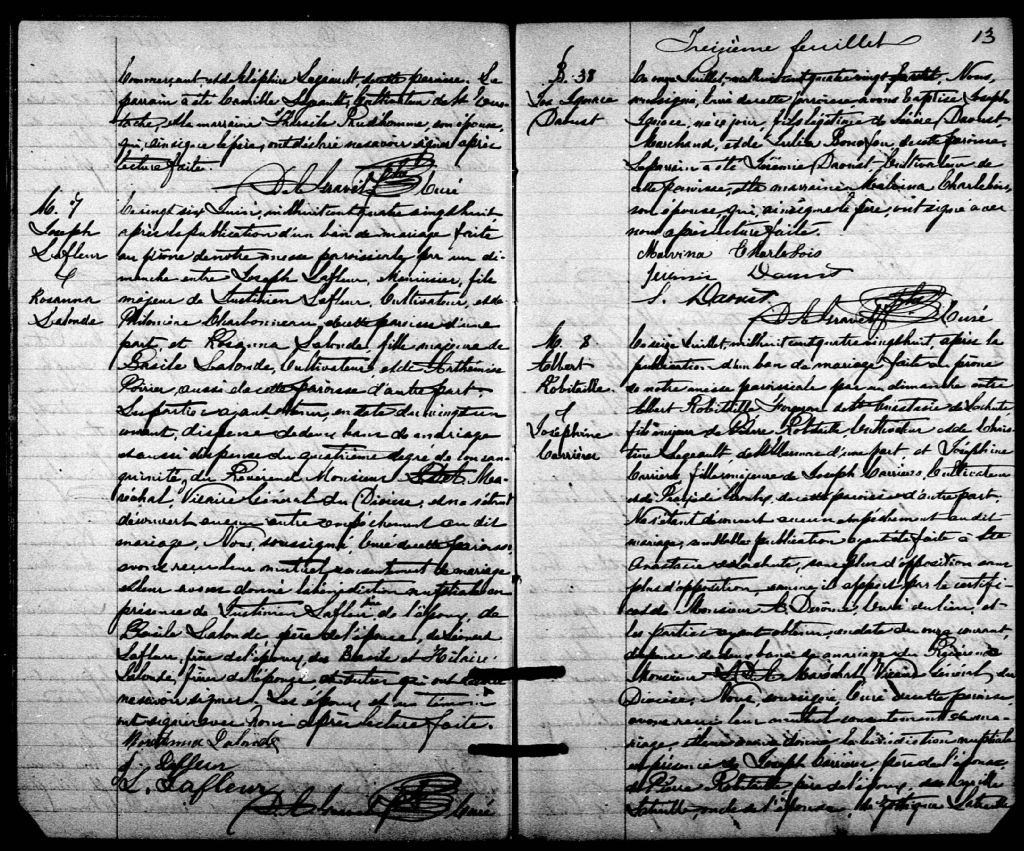 Commerçant et de Delphine Legault, de cette paroisse. Le
parrain a été Camille Legault, Cultivateur de St Eus-
tache, et la marraine Thersile Prudhomme, son épouse,
qui, ainsi que le père, ont déclaré ne savoir signer après
lecture faite.
Curé
M. 7
Joseph
Lafleur
&
Rosanna
Lalonde
Le vingt six Juin, mil huit cent quatre vingt huit
après la publication d'un ban de mariage faite
au prône de notre messe paroissiale par un di-
manche entre Joseph Lafleur, Menuisier, fils
majeur de Justinien Lafleur, Cultivateur, et de
Philomène Charbonneau, de cette paroisse d'une
part, et Rosanna Lalonde, fille majeure de
Basile Lalonde, Cultivateur, et de Arthémise
Poirier, aussi de cette paroisse d'autre part.
Les parties ayant obtenu, en date du vingt un
courant, dispense de deux bans de mariage
et aussi dispense du quatrième degré de consan-
guinité, du Révérend Monsieur Ma-
réchal, Vicaire Général du Diocèse, et ne s'étant
découvert aucun autre empêchement au dit
mariage, Nous, soussigné, Curé de cette paroisse
avons reçu leur mutuel consentement de mariage
et leur avons donné la bénédiction nuptiale en
présence de Justinien Lafleur père de l'époux, de
Basile Lalonde, père de l'épouse, de
Lafleur, frère de l'époux, de Basile et Hilaire
Lalonde, frères de l'épouse et autres qui ont déclaré
ne savoir signer. Les époux et un témoin
ont signé avec nous après lecture faite.
Rosanna Lalonde
J. Lafleur
L. Lafleur
Curé
13
Treizième feuillet
B. 38
Jos Ignace
Daoust
Le onze Juillet, mil huit cent quatre vingt huit, Nous,
soussigné, Curé de cette paroisse avons baptisé Joseph
Ignace, né ce jour, fils légitime de Daoust,
Marchand, et de Julie, de cette paroisse.
Le parrain a été Jérémie Daoust, Cultivateur de
cette paroisse, et la marraine Malvina Charlebois,
son épouse qui, ainsi que le père, ont signé avec
nous après lecture faite.
Malvina Charlebois
Jérémie Daoust
Daoust
Curé
M. 8
Albert
Robitaille
&
Joséphine
Carrière
Le seize Juillet, mil huit cent quatre vingt huit, après la
publication d'un ban de mariage faite au prône
de notre messe paroissiale par un dimanche entre
Albert Robitaille Forgeron de Ste Anastasie de Lachute,
fils majeur de Pierre Robitaille, Cultivateur et de
Legault de d'une part, et Joséphine
Carrière, fille majeure de Joseph Carrière, Cultivateur
et de, de cette paroisse d'autre part.
Ne s'étant découvert aucun empêchement au dit
mariage, semblable publication ayant été faite à Ste
Anastasie de Lachute, sans plus d'opposition
, comme il appert par le certifi-
cat de Monsieur, Curé du lieu, et
les parties ayant obtenu, en date du onze courant,
dispense de deux bans de mariage du Révérend
Monsieur Maréchal Vicaire Général du
Diocèse, Nous, soussigné, Curé de cette paroisse,
avons reçu leur mutuel consentement de ma-
riage, et leur avons donné la bénédiction nuptiale
en présence de Joseph Carrière père de l'épouse,
de Pierre Robitaille, père de l'époux, de Camille
, oncle de l'époux, de